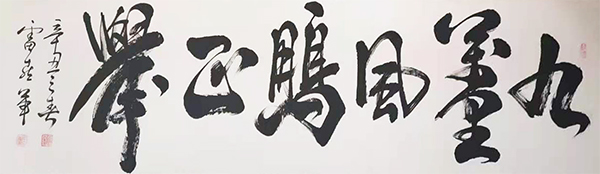 九萬里風鵬正舉
辛丑之春
雷